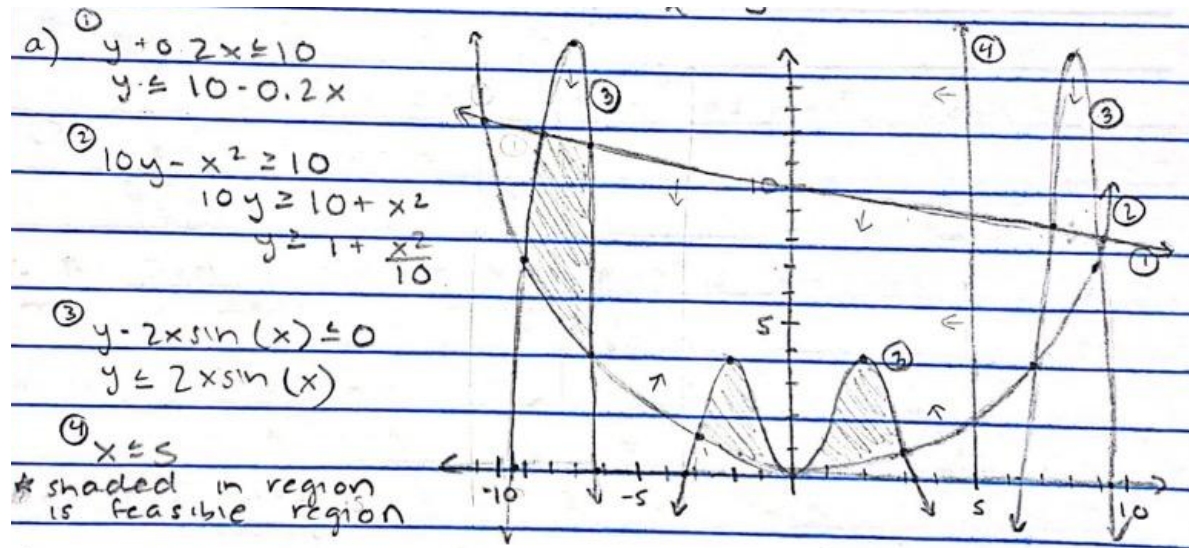 a) ① y + 0.2x ≤ 10
y ≤ 10 - 0.2x
② 10y - x² ≥ 10
10y ≥ 10 + x²
y ≥ 1 + x²/10
③ y - 2x sin(x) ≤ 0
y ≤ 2x sin(x)
④ x ≤ 5
* shaded in region
is feasible region
④
③
③
10
②
①
5
③
-10 -5 5 10